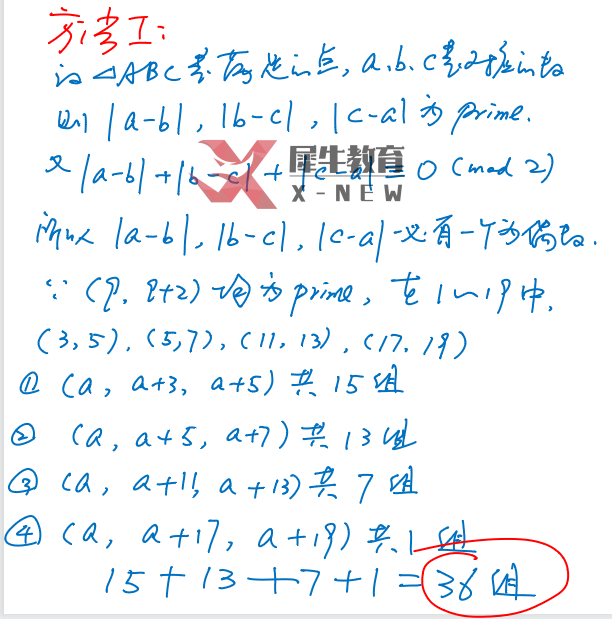 方法工:
设△ABC为满足的点, a、b、c为对应的数
则 |a-b|, |b-c|, |c-a| 为 prime.
又 |a-b|+|b-c|+|c-a| ≡ 0 (mod 2)
犀牛教育
X-NEW
所以 |a-b|, |b-c|, |c-a| 必有一个为偶数.
∵ (q, q+2) 为 prime, 在 1~19中,
(3,5), (5,7), (11,13), (17,19)
① (a, a+3, a+5) 共 15 组
② (a, a+5, a+7) 共 13 组
③ (a, a+11, a+13) 共 7 组
④ (a, a+17, a+19) 共 1 组
15+13+7+1=36 组